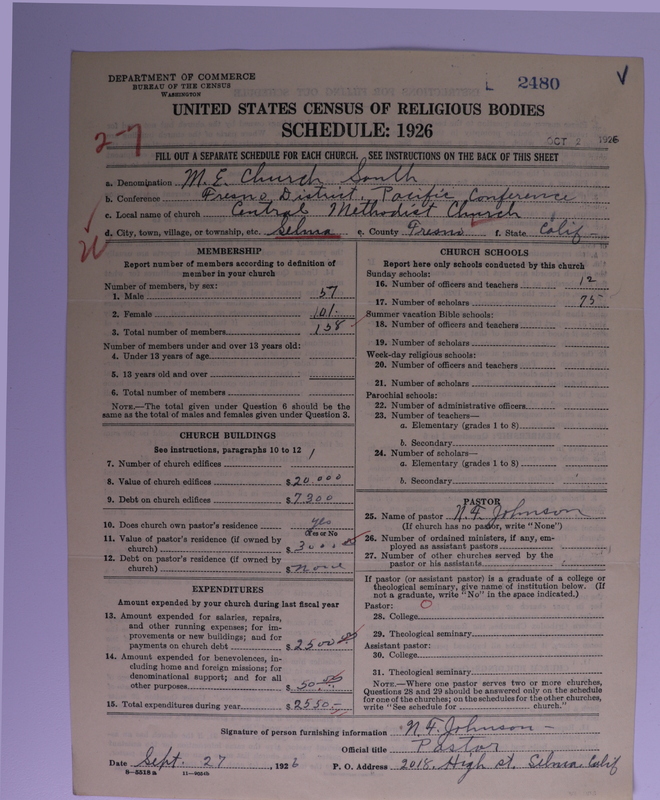 DEPARTMENT OF COMMERCE
BUREAU OF THE CENSUS
WASHINGTON
L 2480
UNITED STATES CENSUS OF RELIGIOUS BODIES
SCHEDULE: 1926
2-7
OCT 2 1926
FILL OUT A SEPARATE SCHEDULE FOR EACH CHURCH. SEE INSTRUCTIONS ON THE BACK OF THIS SHEET
a. Denomination M.E. Church South
b. Conference Fresno District, Pacific Conference
c. Local name of church Central Methodist Church
d. City, town, village, or township, etc. Selma e. County Fresno f. State Calif -
MEMBERSHIP
Report number of members according to definition of
member in your church
Number of members, by sex:
1. Male 57
2. Female 101-
3. Total number of members 158
Number of members under and over 13 years old:
4. Under 13 years of age
5. 13 years old and over
6. Total number of members
NOTE.—The total given under Question 6 should be the
same as the total of males and females given under Question 3.
CHURCH BUILDINGS
See instructions, paragraphs 10 to 12
7. Number of church edifices 1
8. Value of church edifices $ 20.000
9. Debt on church edifices $ 7300
10. Does church own pastor's residence yes
(Yes or No)
11. Value of pastor's residence (if owned by
church) $ 3000
12. Debt on pastor's residence (if owned by
church) $ none
EXPENDITURES
Amount expended by your church during last fiscal year
13. Amount expended for salaries, repairs,
and other running expenses; for im-
provements or new buildings; and for
payments on church debt $ 2500 00
14. Amount expended for benevolences, in-
cluding home and foreign missions; for
denominational support; and for all
other purposes $ 50.00
15. Total expenditures during year $ 2550 -
CHURCH SCHOOLS
Report here only schools conducted by this church
Sunday schools:
16. Number of officers and teachers 12
17. Number of scholars 75
Summer vacation Bible schools:
18. Number of officers and teachers
19. Number of scholars
Week-day religious schools:
20. Number of officers and teachers
21. Number of scholars
Parochial schools:
22. Number of administrative officers
23. Number of teachers—
a. Elementary (grades 1 to 8)
b. Secondary
24. Number of scholars—
a. Elementary (grades 1 to 8)
b. Secondary
PASTOR
25. Name of pastor N. F. Johnson
(If church has no pastor, write "None")
26. Number of ordained ministers, if any, em-
ployed as assistant pastors
27. Number of other churches served by the
pastor or his assistants
If pastor (or assistant pastor) is a graduate of a college or
theological seminary, give name of institution below. (If
not a graduate, write "No" in the space indicated.)
Pastor: O
28. College
29. Theological seminary
Assistant pastor:
30. College
31. Theological seminary
NOTE.—Where one pastor serves two or more churches,
Questions 28 and 29 should be answered only on the schedule
for one of the churches; on the schedules for the other churches,
write "See schedule for church."
Signature of person furnishing information N. F. Johnson -
Official title Pastor
Date Sept. 27, 1926 P. O. Address 2018. High st. Selma. Calif
8-5518 a 11-9034b